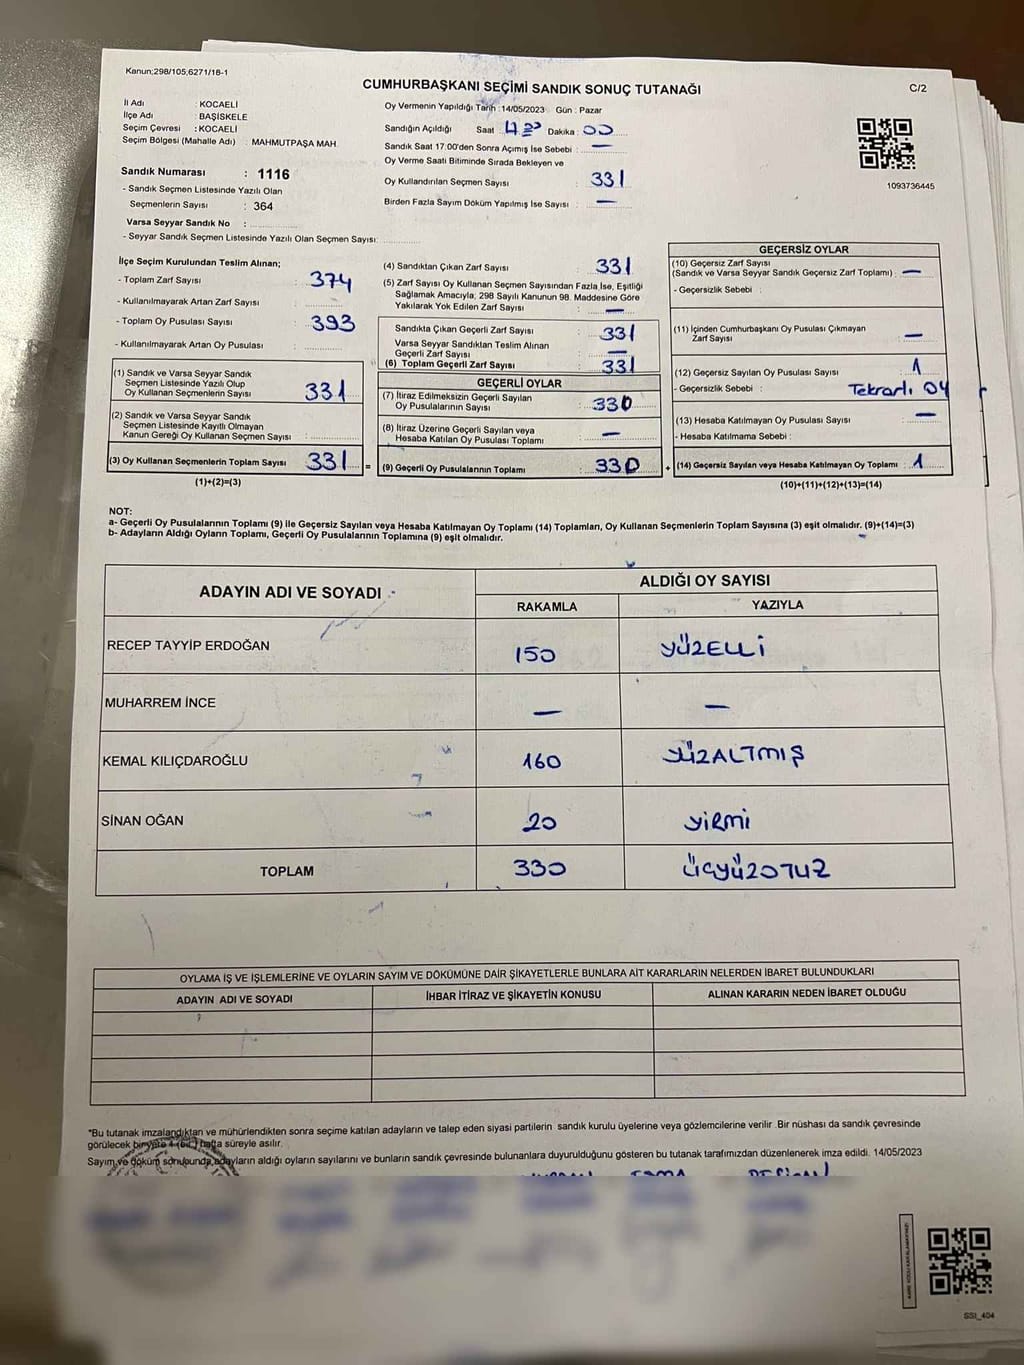 Kanun;298/105,6271/18-1
CUMHURBAŞKANI SEÇİMİ SANDIK SONUÇ TUTANAĞI
C/2
İl Adı : KOCAELİ
İlçe Adı : BAŞİSKELE
Seçim Çevresi : KOCAELİ
Seçim Bölgesi (Mahalle Adı) : MAHMUTPAŞA MAH.
Sandık Numarası : 1116
- Sandık Seçmen Listesinde Yazılı Olan
Seçmenlerin Sayısı : 364
Varsa Seyyar Sandık No :
- Seyyar Sandık Seçmen Listesinde Yazılı Olan Seçmen Sayısı:
Oy Vermenin Yapıldığı Tarih :14/05/2023 Gün : Pazar
Sandığın Açıldığı Saat Dakika : 00
Sandık Saat 17:00'den Sonra Açımış İse Sebebi : —
Oy Verme Saati Bitiminde Sırada Bekleyen ve
Oy Kullandırılan Seçmen Sayısı : 331
Birden Fazla Sayım Döküm Yapılmış İse Sayısı : —
1093736445
İlçe Seçim Kurulundan Teslim Alınan;
- Toplam Zarf Sayısı : 374
- Kullanılmayarak Artan Zarf Sayısı :
- Toplam Oy Pusulası Sayısı : 393
- Kullanılmayarak Artan Oy Pusulası :
(1) Sandık ve Varsa Seyyar Sandık
Seçmen Listesinde Yazılı Olup
Oy Kullanan Seçmenlerin Sayısı : 331
(2) Sandık ve Varsa Seyyar Sandık
Seçmen Listesinde Kayıtlı Olmayan
Kanun Gereği Oy Kullanan Seçmen Sayısı :
(3) Oy Kullanan Seçmenlerin Toplam Sayısı : 331
(1)+(2)=(3)
(4) Sandıktan Çıkan Zarf Sayısı : 331
(5) Zarf Sayısı Oy Kullanan Seçmen Sayısından Fazla İse, Eşitliği
Sağlamak Amacıyla; 298 Sayılı Kanunun 98. Maddesine Göre
Yakılarak Yok Edilen Zarf Sayısı : —
Sandıkta Çıkan Geçerli Zarf Sayısı : 331
Varsa Seyyar Sandıktan Teslim Alınan
Geçerli Zarf Sayısı : —
(6) Toplam Geçerli Zarf Sayısı : 331
GEÇERLİ OYLAR
(7) İtiraz Edilmeksizin Geçerli Sayılan
Oy Pusulalarının Sayısı : 330
(8) İtiraz Üzerine Geçerli Sayılan veya
Hesaba Katılan Oy Pusulası Toplamı : —
= (9) Geçerli Oy Pusulalarının Toplamı : 330 +
GEÇERSİZ OYLAR
(10) Geçersiz Zarf Sayısı
(Sandık ve Varsa Seyyar Sandık Geçersiz Zarf Toplamı) : —
- Geçersizlik Sebebi :
(11) İçinden Cumhurbaşkanı Oy Pusulası Çıkmayan
Zarf Sayısı : —
(12) Geçersiz Sayılan Oy Pusulası Sayısı : 1
- Geçersizlik Sebebi : Tekrarlı Oy
(13) Hesaba Katılmayan Oy Pusulası Sayısı : —
- Hesaba Katılmama Sebebi :
(14) Geçersiz Sayılan veya Hesaba Katılmayan Oy Toplamı : 1
(10)+(11)+(12)+(13)=(14)
NOT:
a- Geçerli Oy Pusulalarının Toplamı (9) ile Geçersiz Sayılan veya Hesaba Katılmayan Oy Toplamı (14) Toplamları, Oy Kullanan Seçmenlerin Toplam Sayısına (3) eşit olmalıdır. (9)+(14)=(3)
b- Adayların Aldığı Oyların Toplamı, Geçerli Oy Pusulalarının Toplamına (9) eşit olmalıdır.
ADAYIN ADI VE SOYADI
ALDIĞI OY SAYISI
RAKAMLA YAZIYLA
RECEP TAYYİP ERDOĞAN 150 YÜZELLİ
MUHARREM İNCE — —
KEMAL KILIÇDAROĞLU 160 YÜZALTMIŞ
SİNAN OĞAN 20 YİRMİ
TOPLAM 330 ÜÇYÜZOTUZ
OYLAMA İŞ VE İŞLEMLERİNE VE OYLARIN SAYIM VE DÖKÜMÜNE DAİR ŞİKAYETLERLE BUNLARA AİT KARARLARIN NELERDEN İBARET BULUNDUKLARI
ADAYIN ADI VE SOYADI İHBAR İTİRAZ VE ŞİKAYETİN KONUSU ALINAN KARARIN NEDEN İBARET OLDUĞU
*Bu tutanak imzalandıktan ve mühürlendikten sonra seçime katılan adayların ve talep eden siyasi partilerin sandık kurulu üyelerine veya gözlemcilerine verilir .Bir nüshası da sandık çevresinde
görülecek bir yere 1 (bir) hafta süreyle asılır.
Sayım ve döküm sonucunda,adayların aldığı oyların sayılarını ve bunların sandık çevresinde bulunanlara duyurulduğunu gösteren bu tutanak tarafımızdan düzenlenerek imza edildi. 14/05/2023
SSI_404